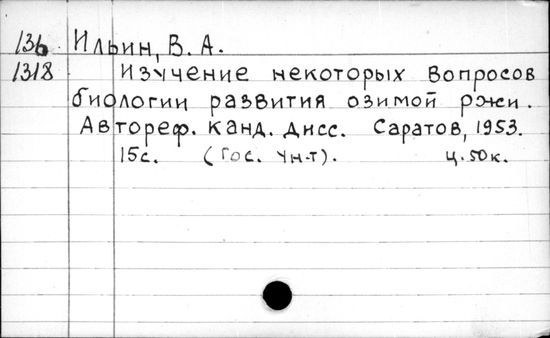 13б Ильин, В. А.
1318 Изучение некоторых вопросов
биологии развития озимой ржи.
Автореф. канд. дисс. Саратов, 1953.
15с. (Гос. Ун-т). ц. 50к.